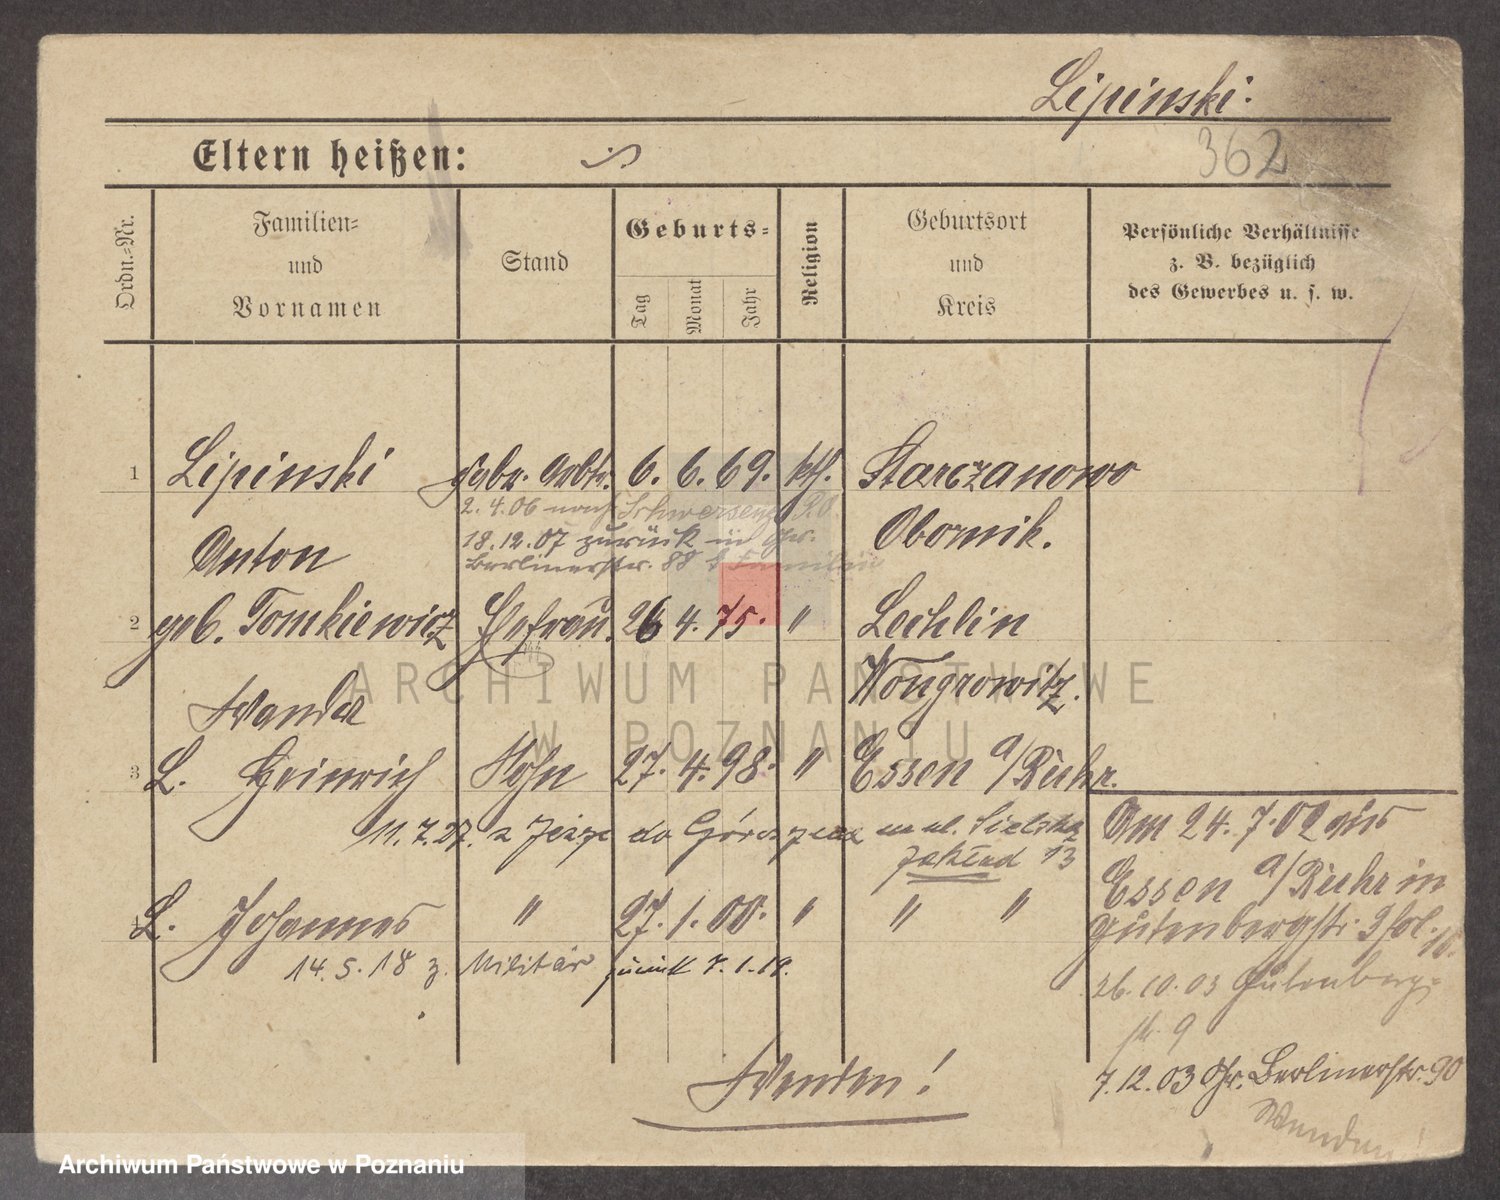 Lipinski.
362
Eltern heißen:
Ordn.-Nr.
Familien-
und
Vornamen
Stand
Geburts-
Tag
Monat
Jahr
Religion
Geburtsort
und
Kreis
Persönliche Verhältnisse
z. B. bezüglich
des Gewerbes u. s. w.
1 Lipinski Arbtr. 6. 6. 69. kth. Starczanowo
2.4.06 nach Schwersenz
Anton Obornik.
18.12.07 zurück in
Berlinerstr. 88 Familie
2 geb. Tomkiewicz Ehefrau. 26 4. 75. " Lechlin
Wanda Wongrowitz.
3 L. Heinrich Sohn 27. 4. 98. " Essen a/Ruhr.
11.7.27. z Jeżyc do Górczyna
13
Am 24.7.02 aus
Essen a/Ruhr in
Gutenbergstr. 9
4 L. Johannes " 27. 1. 00. " " "
14.5.18 z. Militär zurück 7.1.19.
26.10.03 Gutenberg-
str. 9
7.12.03 Gr. Berlinerstr. 90
Wenden!
Wenden!
ARCHIWUM PAŃSTWOWE
W POZNANIU
Archiwum Państwowe w Poznaniu